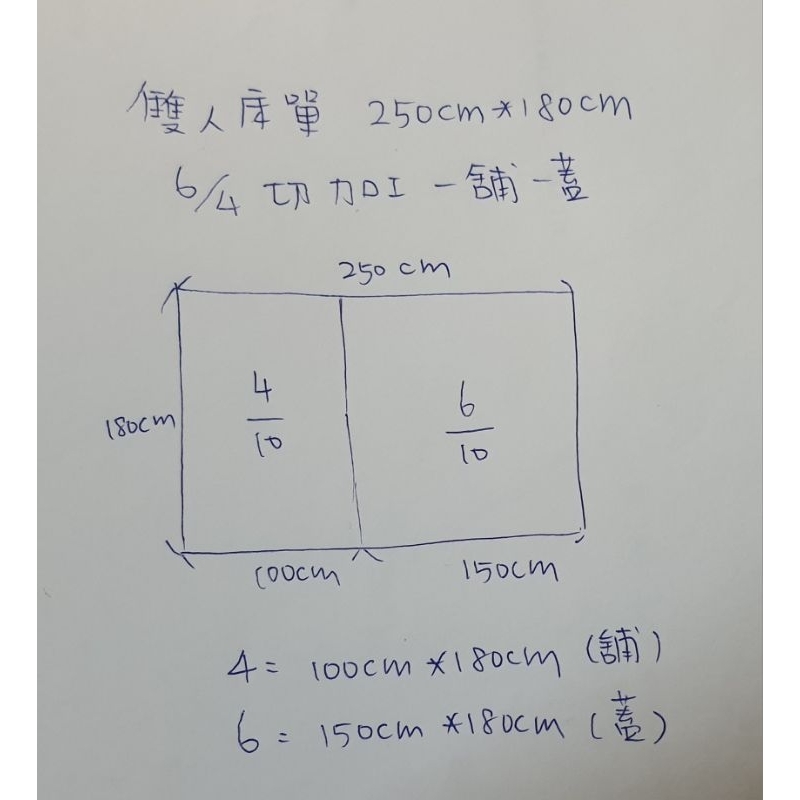 雙人床單 250cm*180cm
6/4 切 加工 一舖一蓋
250cm
180cm
4/10
6/10
100cm
150cm
4= 100cm*180cm (舖)
6= 150cm*180cm (蓋)